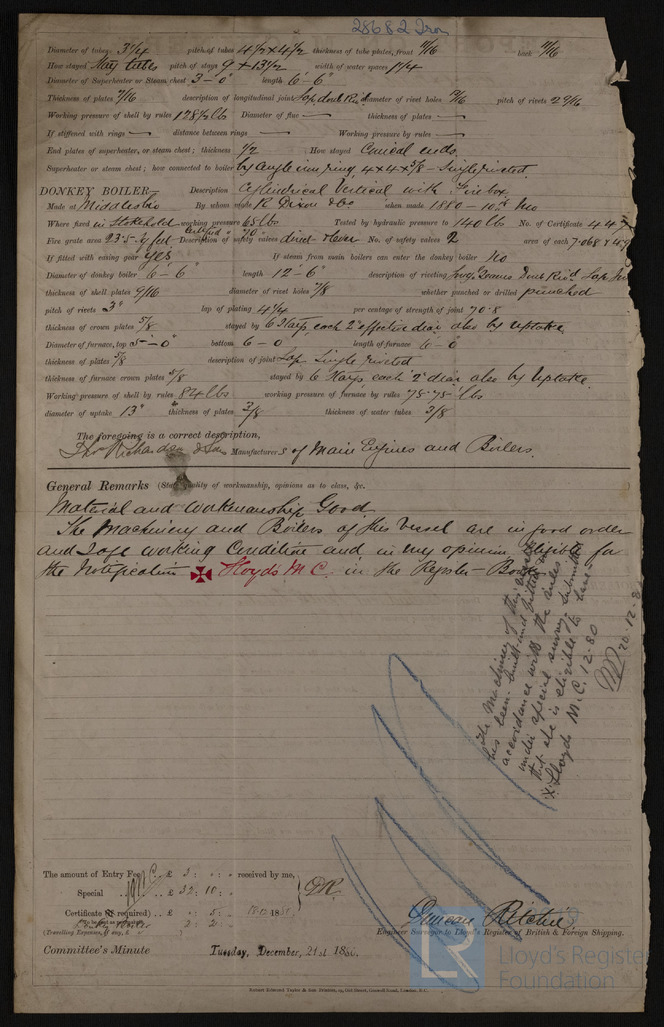 28682 Iron
Diameter of tubes 3 1/4 pitch of tubes 4 1/2 x 4 1/2 thickness of tube plates, front 11/16 back 11/16
How stayed Stay tubes pitch of stays 9 x 13 1/2 width of water spaces 1 1/4
Diameter of Superheater or Steam chest 3-0" length 6-6"
Thickness of plates 7/16 description of longitudinal joint Lap doub Riv diameter of rivet holes 13/16 pitch of rivets 2 9/16
Working pressure of shell by rules 128 1/2 lb Diameter of flue — thickness of plates —
If stiffened with rings — distance between rings — Working pressure by rules —
End plates of superheater, or steam chest; thickness 1/2 How stayed Conical ends
Superheater or steam chest; how connected to boiler by angle iron ring 4 x 4 x 5/8 – Single riveted
DONKEY BOILER— Description Cylindrical Vertical with Firebox
Made at Middlesbro By whom made R Dixon & Co when made 1880 – 10th Mo
Where fixed in Stokehold working pressure 65 lbs Tested by hydraulic pressure to 140 lb No. of Certificate 447
Fire grate area 23.5 sq feet Description of safety valves direct No. of safety valves 2 area of each 7.068
If fitted with easing gear yes If steam from main boilers can enter the donkey boiler No
Diameter of donkey boiler 6-6" length 12-6" description of riveting Long Seams Doub Rivd Lap
thickness of shell plates 9/16 diameter of rivet holes 7/8 whether punched or drilled punched
pitch of rivets 3" lap of plating 4 1/4 per centage of strength of joint 70.8
thickness of crown plates 5/8 stayed by 6 Stays, each 2" effective diar also by uptake
Diameter of furnace, top 5-0" bottom 6-0 length of furnace 6-0
thickness of plates 5/8 description of joint Lap Single riveted
thickness of furnace crown plates 5/8 stayed by 6 Stays each 2" diar also by Uptake.
Working pressure of shell by rules 84 lbs working pressure of furnace by rules 75.75 lbs
diameter of uptake 13" thickness of plates 3/8 thickness of water tubes 3/8
The foregoing is a correct description,
Thos Richardson & Sons Manufacturers of Main Engines and Boilers.
General Remarks (State quality of workmanship, opinions as to class, &c.
Material and workmanship Good
The Machinery and Boilers of this Vessel are in good order
and Safe working Condition and in my opinion eligible for
the Notification ✠ Lloyds M C. in the Register Book
The Machinery of this vessel
has been built and fitted in
accordance with the rules
under special survey. Submitted
that she is eligible to have
✠ Lloyd M.C. 12.80
20.12.80
The amount of Entry Fee .. £ 3 : " : " received by me,
Special .. £ 32 : 10 : "
Certificate (if required) .. £ " : 5 : " 18.12.1880
2 : 2 : "
(Travelling Expenses, if any, £ )
Duncan Ritchie
Engineer Surveyor to Lloyd's Register of British & Foreign Shipping.
Committee's Minute Tuesday, December, 21st 1880.
LR
Lloyd's Register
Foundation